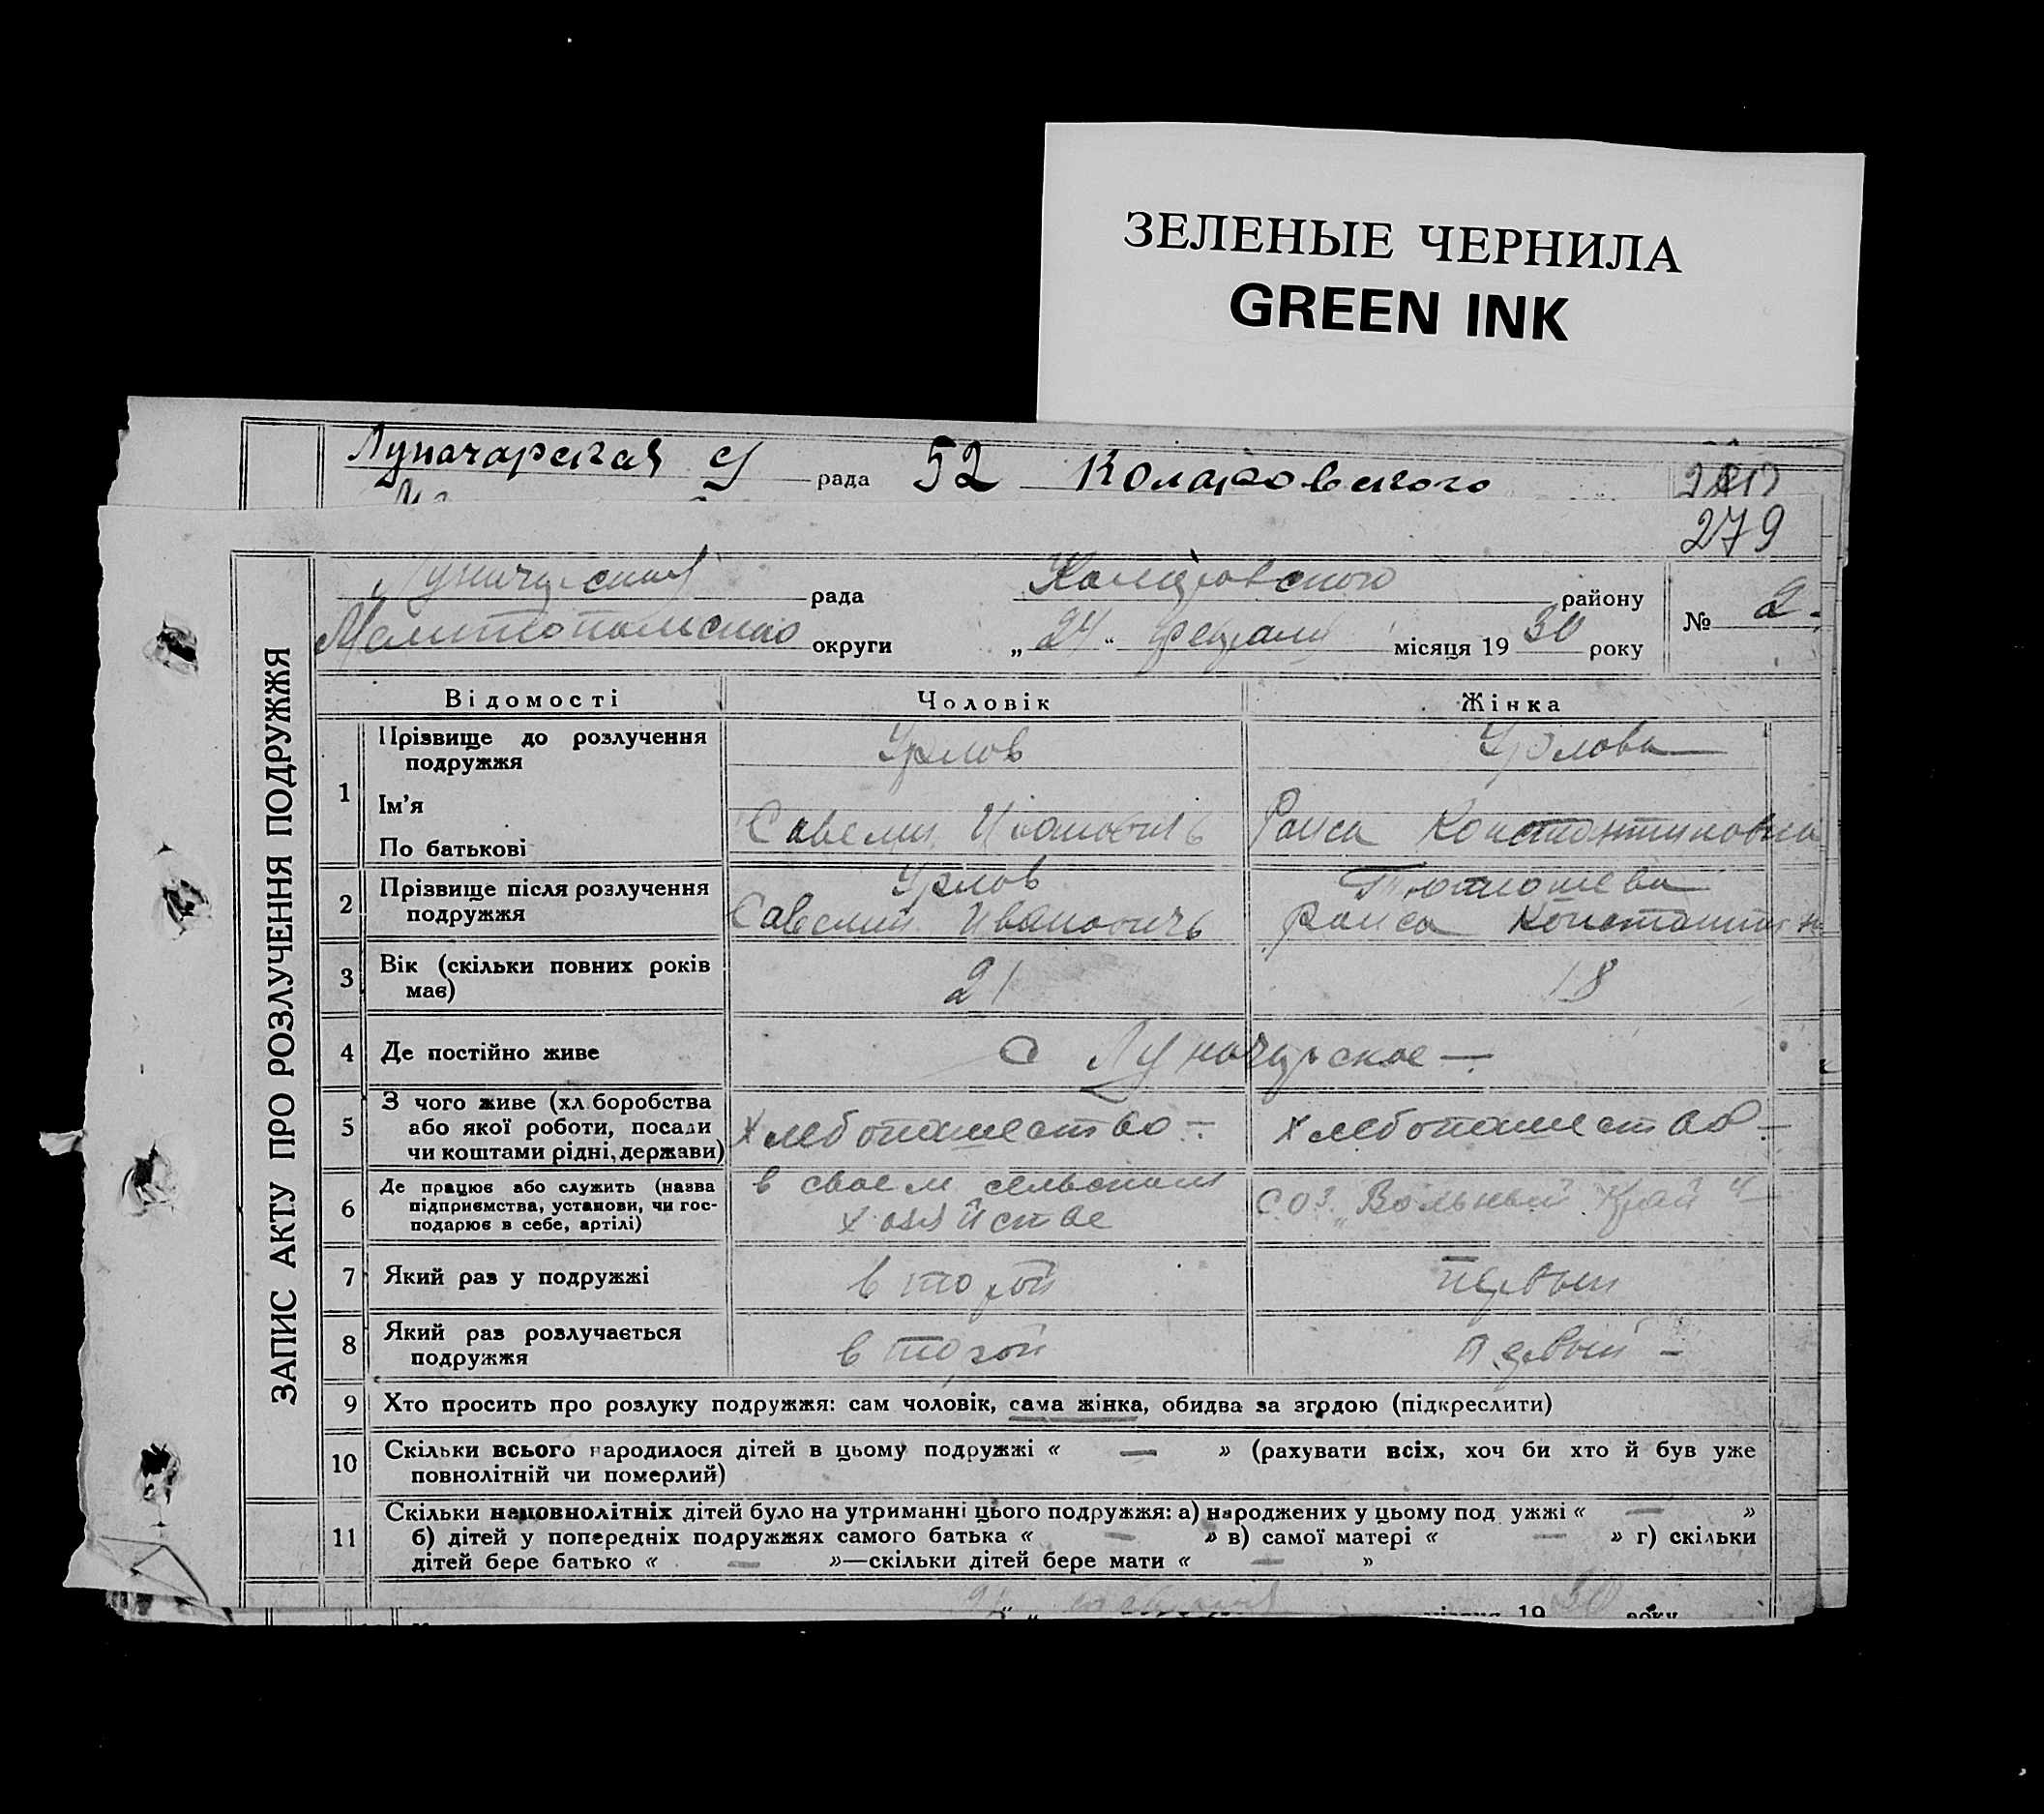 ЗЕЛЕНЫЕ ЧЕРНИЛА
GREEN INK
Луначарская с/ рада 52 Коларовского
279
Луначарская рада Коларовского району
Мелитопольского округи „24“ февраля місяця 1930 року № 2.
ЗАПИС АКТУ ПРО РОЗЛУЧЕННЯ ПОДРУЖЖЯ
Відомості Чоловік Жінка
1 Прізвище до розлучення подружжя Урлов Урлова
Ім'я
По батькові Савелий Ивановичь Раиса Константиновна
2 Прізвище після розлучення подружжя Урлов
Савелий Ивановичь Раиса Константин
3 Вік (скільки повних років має) 21 18
4 Де постійно живе С Луначарское —
5 З чого живе (хл.боробства або якої роботи, посади чи коштами рідні, держави) Хлебопашество — Хлебопашество —
6 Де працює або служить (назва підприємства, установи, чи господарює в себе, артілі) в своем сельском хозяйстве СОЗ „Вольный Край“ —
7 Який раз у подружжі второй первый
8 Який раз розлучається подружжя второй первый —
9 Хто просить про розлуку подружжя: сам чоловік, сама жінка, обидва за згодою (підкреслити)
10 Скільки всього народилося дітей в цьому подружжі « — » (рахувати всіх, хоч би хто й був уже
повнолітній чи померлий)
11 Скільки неповнолітніх дітей було на утриманні цього подружжя: а) народжених у цьому под ужжі « — »
б) дітей у попередніх подружжях самого батька « — » в) самої матері « — » г) скільки
дітей бере батько « — »—скільки дітей бере мати « — »
19 30 року